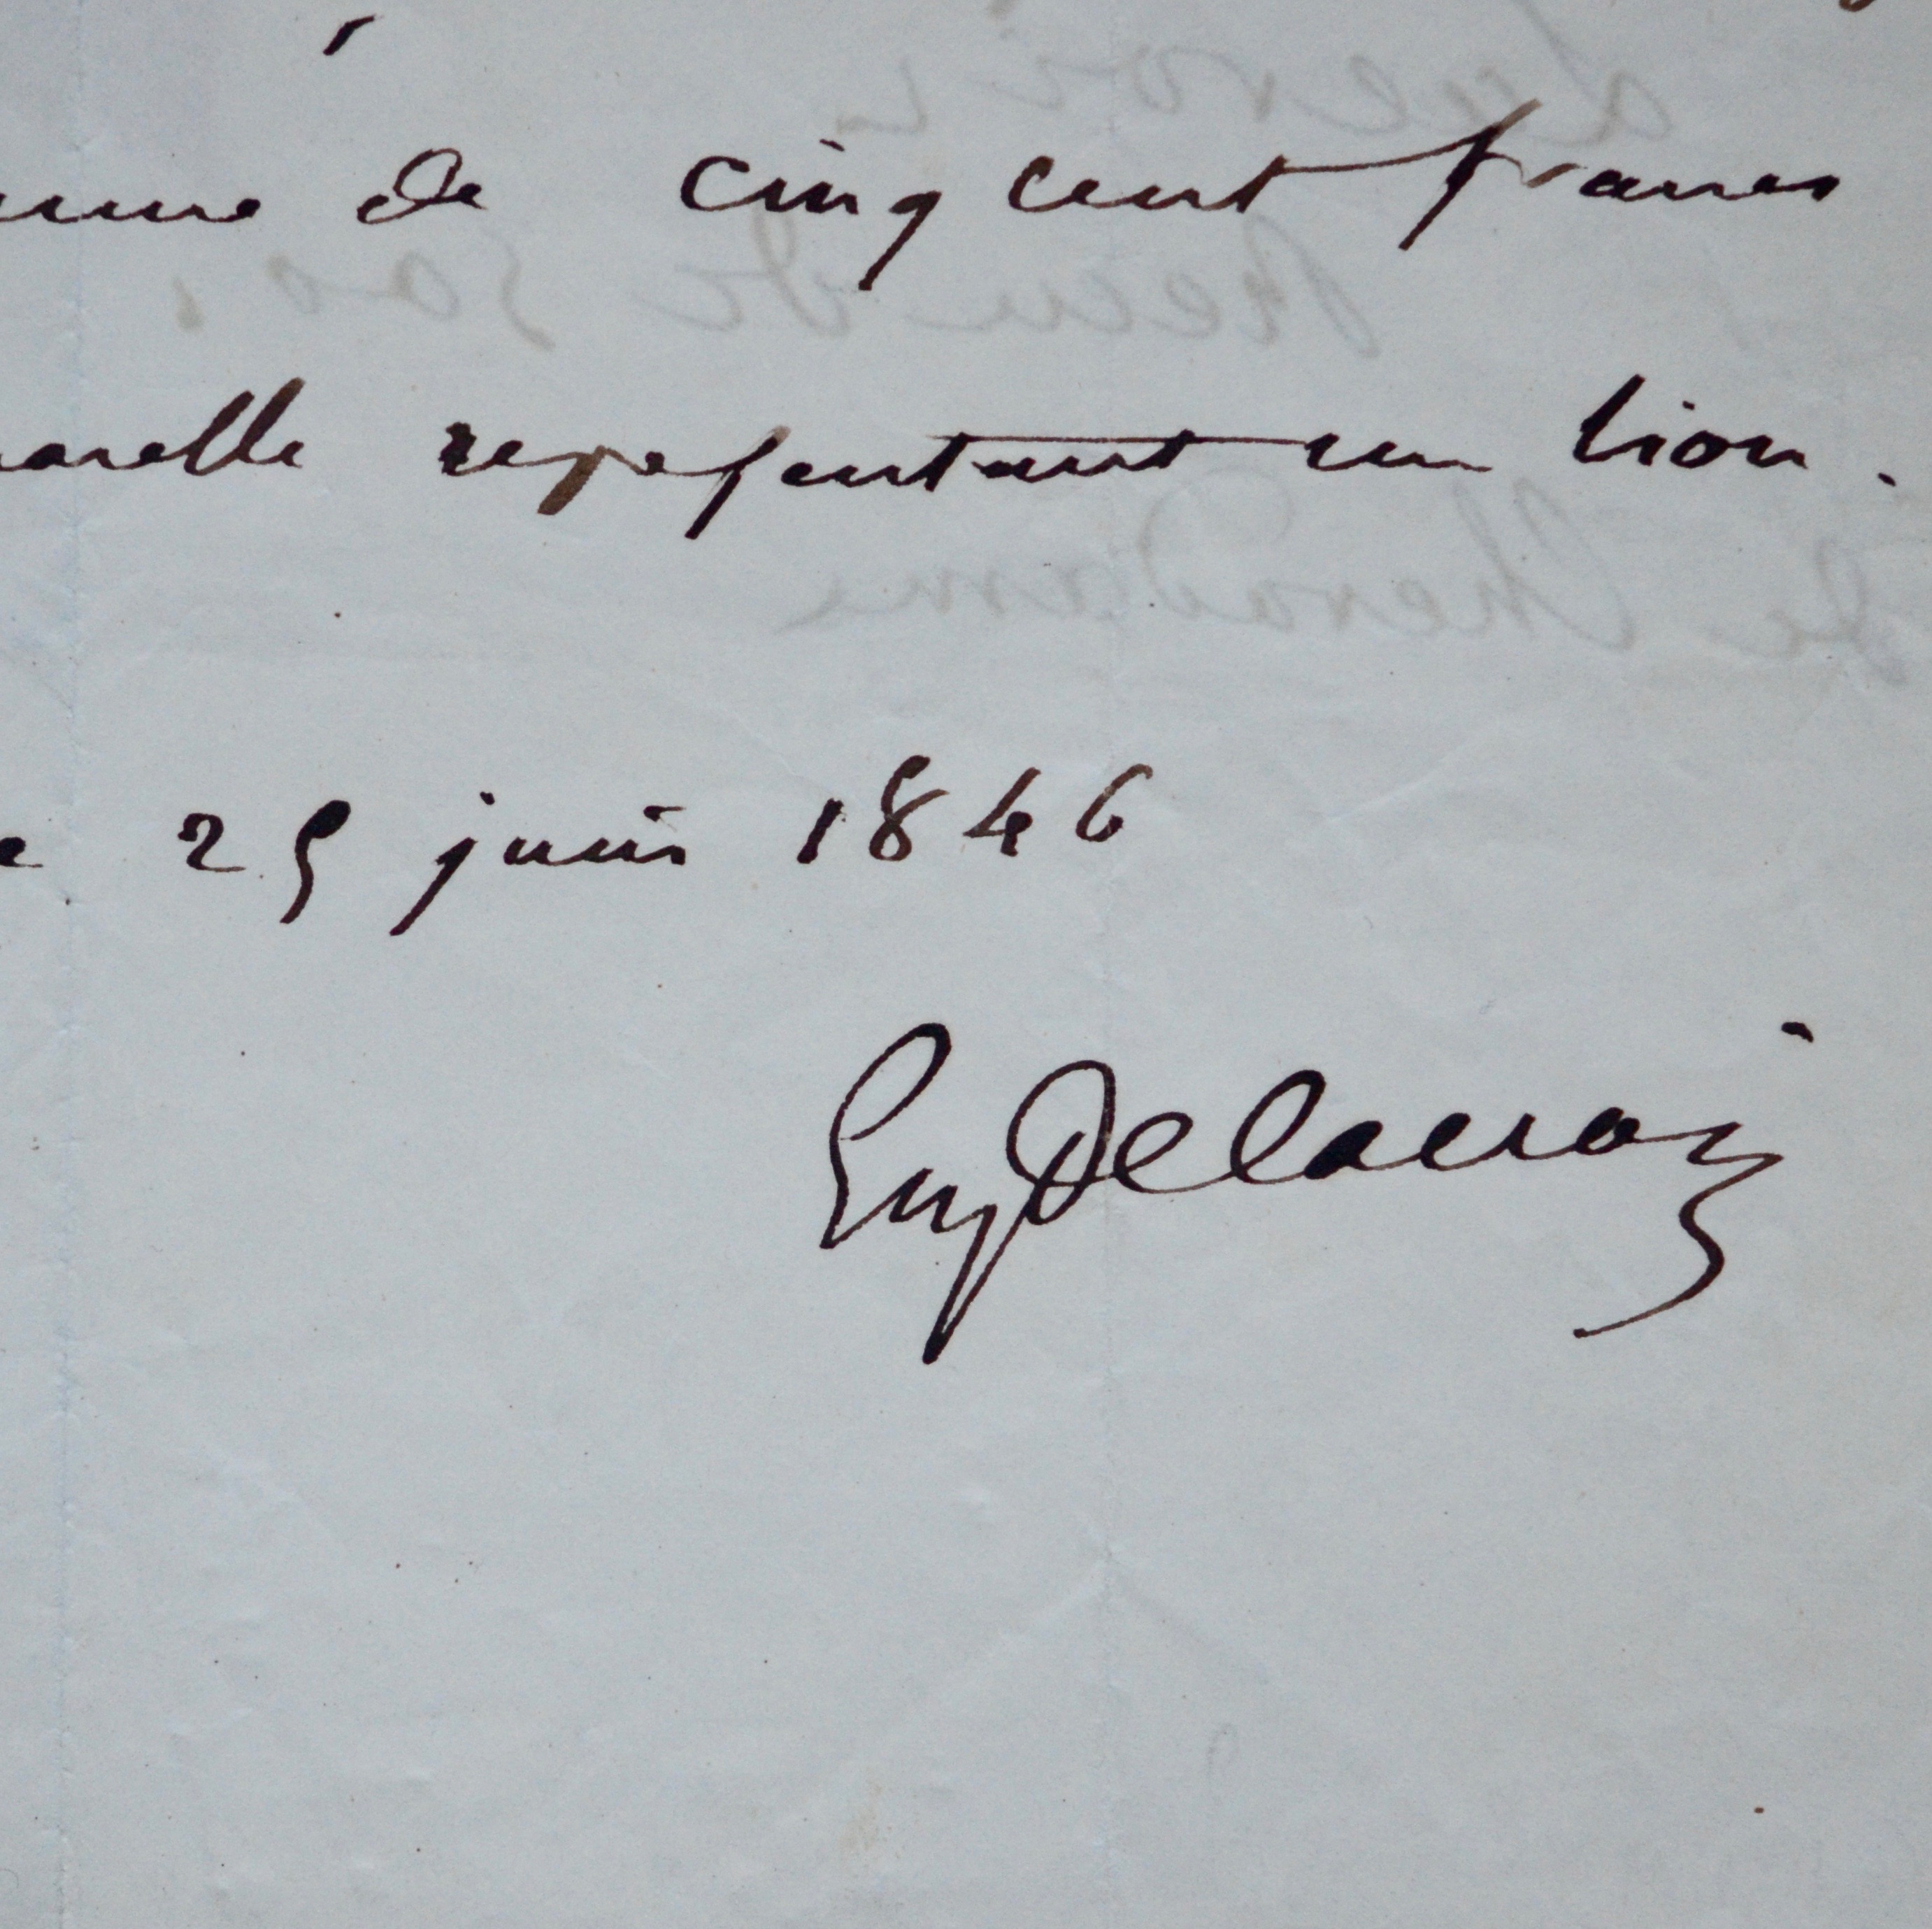 mme de cinq cent francs
uarelle représentant un lion.
e 29 juin 1846
EugDelacroix